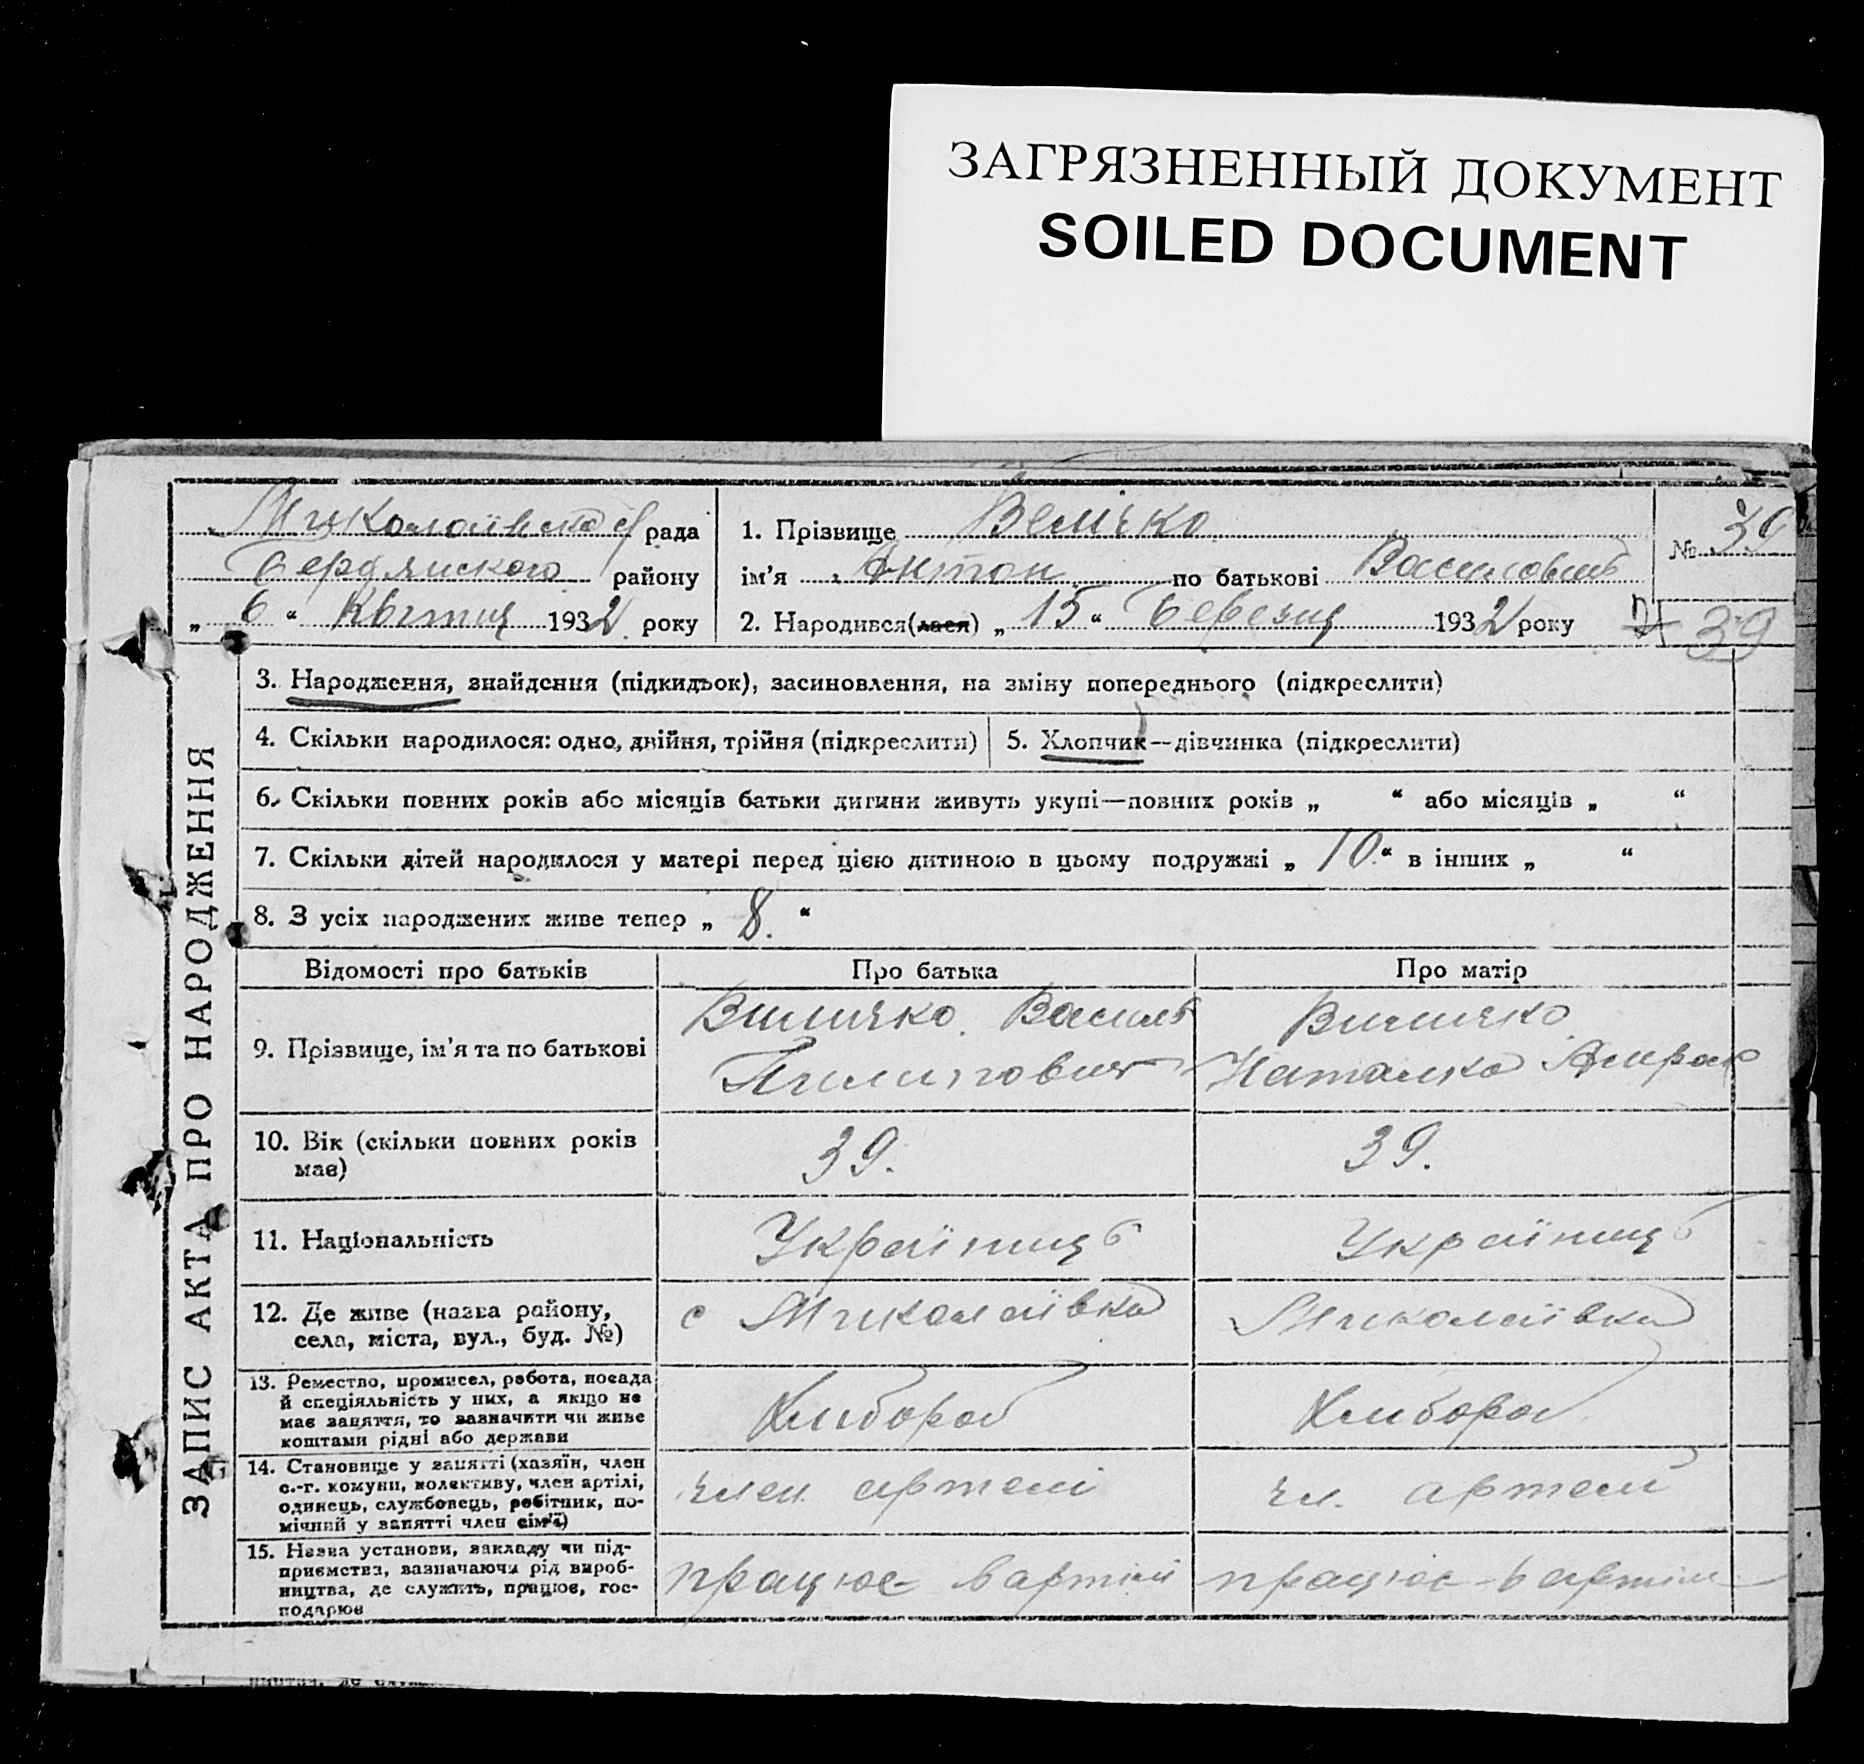 ЗАГРЯЗНЕННЫЙ ДОКУМЕНТ
SOILED DOCUMENT
Миколаївська с/рада
Бердянского району
„ 6 “ Квітня 1932 року
1. Прізвище Велічко
ім’я Антон по батькові Васильович
2. Народився(лася) „ 15 “ березня 1932 року
№ 39
39
ЗАПИС АКТА ПРО НАРОДЖЕННЯ
3. Народження, знайдення (підкидьок), засиновлення, на зміну попереднього (підкреслити)
4. Скільки народилося: одно, двійня, трійня (підкреслити)
5. Хлопчик—дівчинка (підкреслити)
6. Скільки повних років або місяців батьки дитини живуть укупі—повних років „ “ або місяців „ “
7. Скільки дітей народилося у матері перед цією дитиною в цьому подружжі „ 10. “ в інших „ “
8. З усіх народжених живе тепер „ 8. “
Відомості про батьків
Про батька
Про матір
9. Прізвище, ім’я та по батькові
Виличко Василь
Пилипович
Виличко
Наталка
10. Вік (скільки повних років
має)
39.
39.
11. Національність
Українць
Українць
12. Де живе (назва району,
села, міста, вул., буд. №)
с Миколаївка
Миколаївка
13. Ремество, промисел, робота, посада
й спеціяльність у них, а якщо не
має заняття, то зазначити чи живе
коштами рідні або держави
Хлибороб
Хлибороб
14. Становище у занятті (хазяїн, член
с.-г. комуни, колективу, член артілі,
одинець, службовець, робітник, по-
мічний у занятті член сім’ї)
член артелі
чл. артели
15. Назва установи, закладу чи під-
приємства, зазначаючи рід вироб-
ництва, де служить, працює, гос-
подарює
працює в артіли
працює в артіли